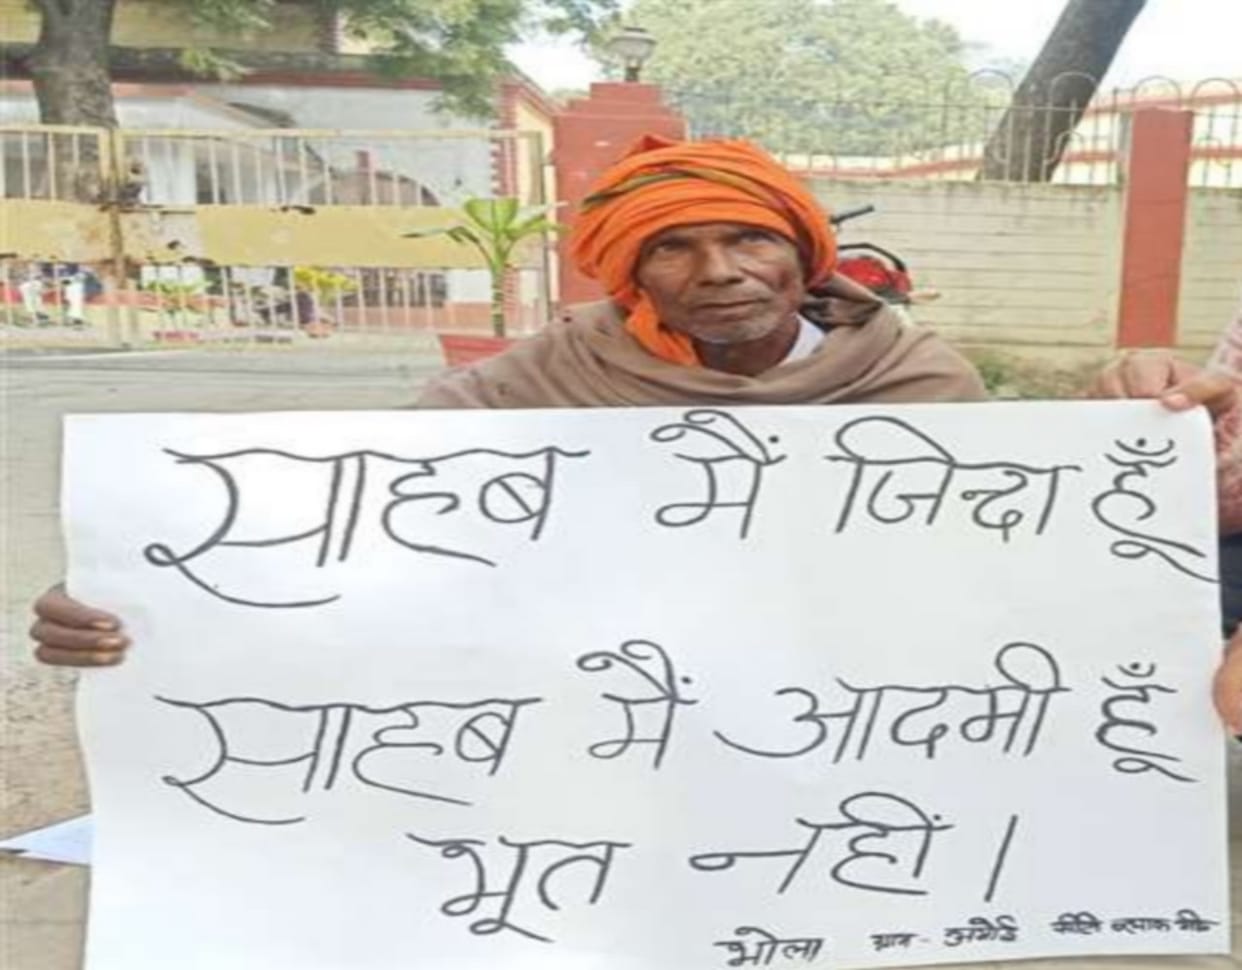 साहब मैं जिन्दा हूँ
साहब मैं आदमी हूँ
भूत नहीं।
भोला ग्राम - अमोई